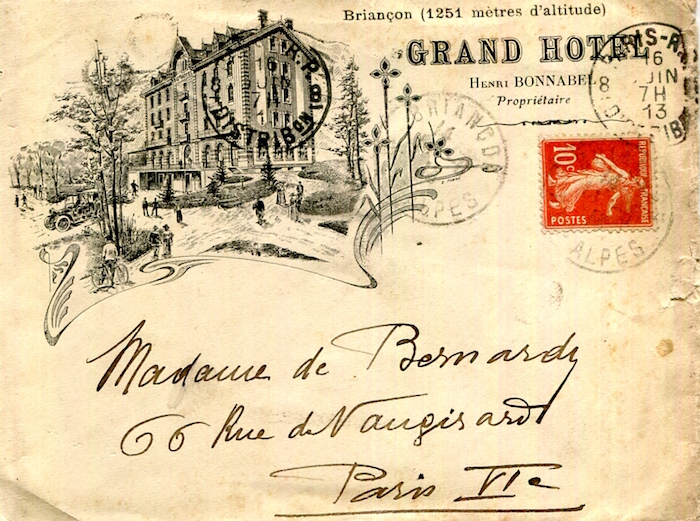 Briançon (1251 mètres d'altitude)
GRAND HOTEL
HENRI BONNABEL
Propriétaire
PARIS-R.P.
16
8 JUIN
7H
13
DISTRIBON
BRIANÇON
ALPES
10c
REPUBLIQUE FRANÇAISE
POSTES
ALPES
Madame de Bernardy
66 Rue de Vaugirard
Paris VIe